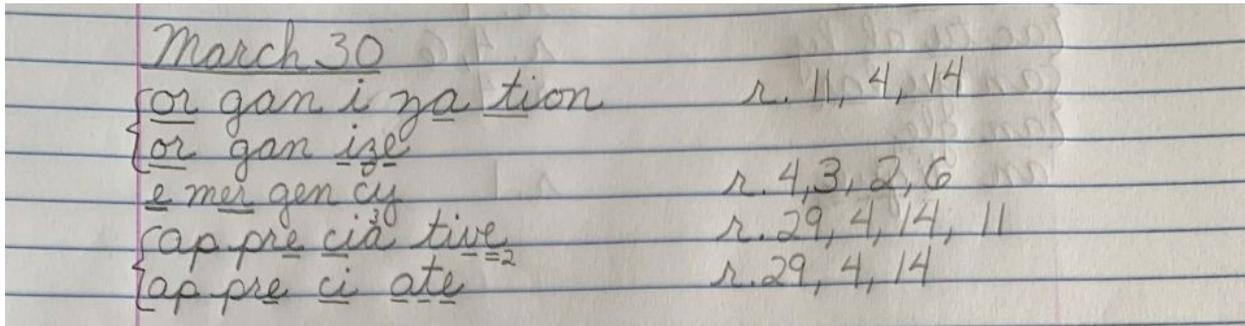 March 30
or gan i za tion r. 11, 4, 14
or gan ize
e mer gen cy r. 4, 3, 2, 6
ap pre cia³ tive₂ r. 29, 4, 14, 11
ap pre ci ate r. 29, 4, 14